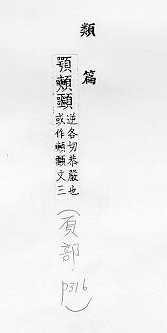 類篇
顎䫷顭
逆各切恭嚴也
或作䫷顭文三
(頁部
p316)